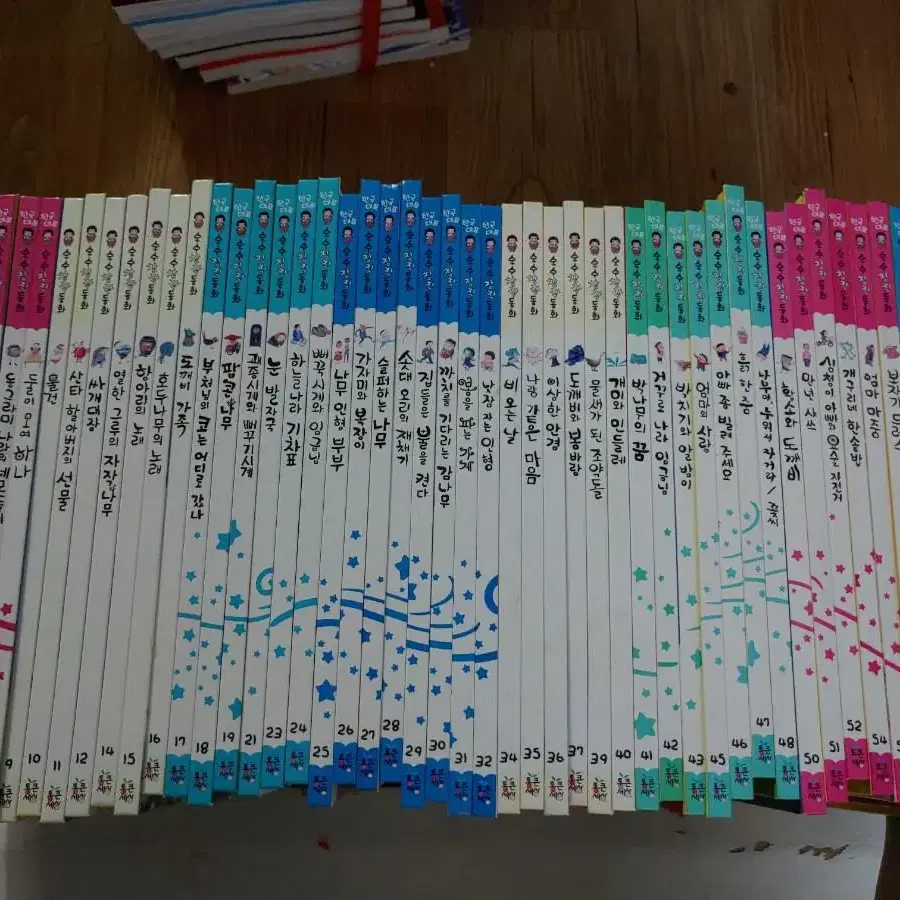 동그라미 나라의
9
둥근 오여 하나
10
물건
11
산타 할아버지의 선물
12
싸개대장
14
열한 그루의 자작나무
15
항아리의 노래
16
호두나무의 노래
17
도깨비 가족
18
부처님의 코는 어디로 갔나
19
팝콘나무
21
괘종시계와 뻐꾸기시계
23
눈 방장국
24
하늘나라 기차표
25
뻐꾹시계와 임금님
26
나무 인형 부부
27
가자미와 복장이
28
슬퍼하는 나무
29
솟대 오리의 재채기
30
집들은 봄을 켠다
31
까치를 기다리는 감나무
32
꿈을 파는 가게
낮잠 자는 인형
34
비 오는 날
35
나랑 같은 마음
36
이상한 안경
37
도깨비와 꽃바람
39
물새가 된 조약돌
40
개미와 민들레
41
밤나무의 꿈
42
거꾸로 나라 임금님
43
박치기와 알밤이
45
엄마 사랑
46
아빠 좀 빌려 주세요
47
흙 한 줌
48
나무야, 누워서 자거라 / 꽃씨
황소와 도깨비
50
만년 샤쓰
51
삼형이 아빠와
52
개구리네 한솥밥
54
엄마 마중